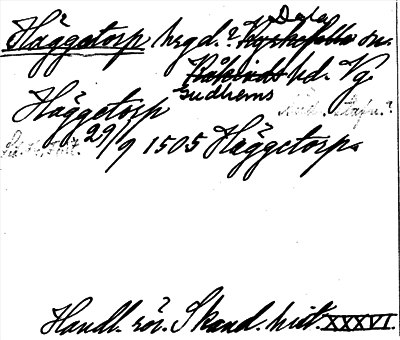 Häggetorp hrgd.? Dala sn.
Gudhems hd. Vg.
Häggetorp
29/9 1505 Häggetorp
Handl. rör. Skand. hist. XXXVI.